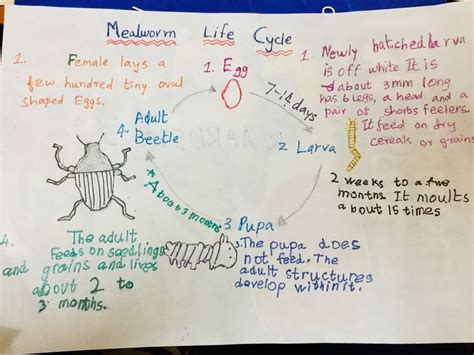 Mealworm Life Cycle
1. Female lays a
few hundred tiny oval
shaped Eggs.
1. Egg
7-14 days
1. Newly hatched larva
is off white It is
about 3mm long
has 6 legs, a head, and a
pair of shorts feelers.
It feed on dry
cereals or grains
2. Larva
2 weeks to a few
montns. It moults
about 15 times
3. Pupa
3. The pupa does
not feed. The
adult structures
develop within it.
About 3 months
4. Adult
Beetle
4. The adult
Feeds on seedlings
and grains and lives
about 2 to
3 months.